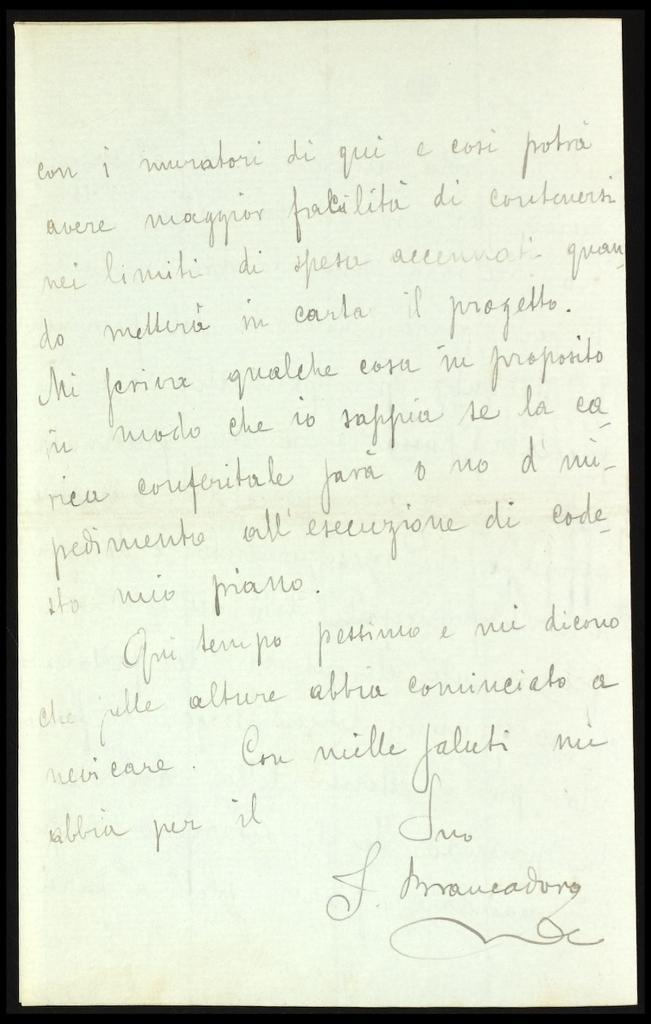 con i muratori di qui e così potrà
avere maggior facilità di contenersi
nei limiti di spesa accennati quan-
do metterà in carta il progetto.
Mi scriva qualche cosa in proposito
in modo che io sappia se la ca-
rica conferitale sarà o no d'im-
pedimento all'esecuzione di code-
sto mio piano.
Qui tempo pessimo e mi dicono
che sulle alture abbia cominciato a
nevicare. Con mille saluti mi
abbia per il Suo
F. Brancadoro